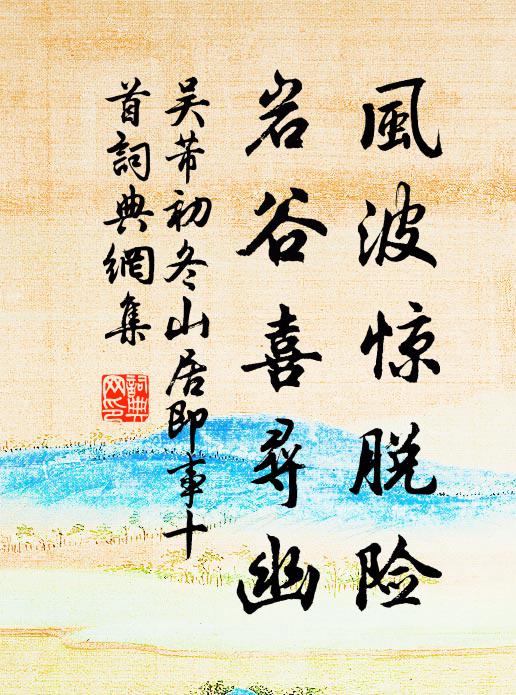 風波惊脫险
岩谷喜尋幽
吴芾初冬山居即事十
首詞典網集
詞典
网印